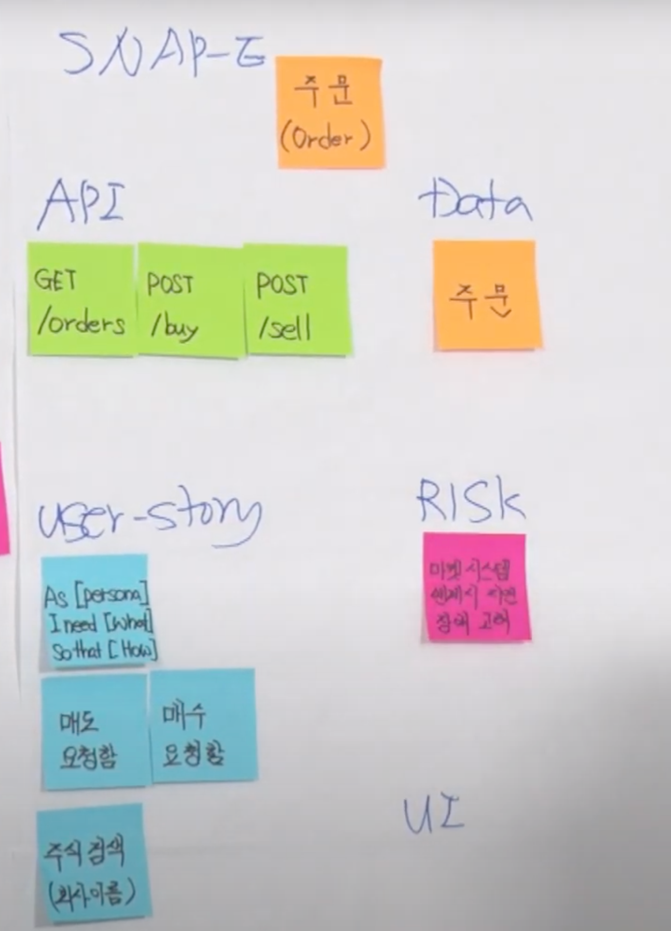 SNAP-E
주문
(Order)
API
GET
/orders
POST
/buy
POST
/sell
Data
주문
user-story
As [persona]
I need [What]
So that [How]
매도
요청함
매수
요청함
주식 검색
(회사이름)
RISK
마켓시스템
연계시 지연
장애 고려
UI